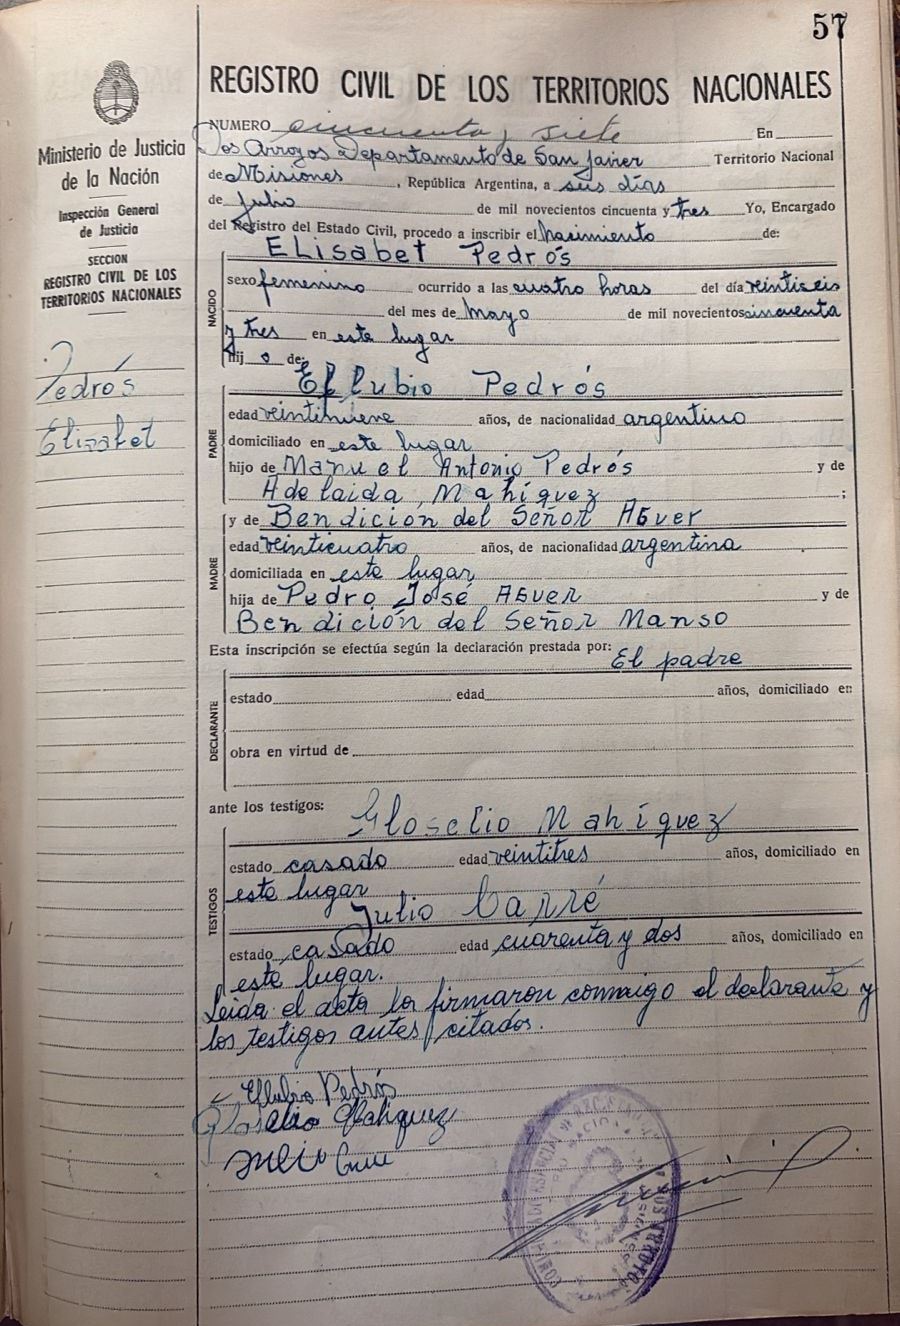 57
REGISTRO CIVIL DE LOS TERRITORIOS NACIONALES
Ministerio de Justicia
de la Nación
Inspección General
de Justicia
SECCION
REGISTRO CIVIL DE LOS
TERRITORIOS NACIONALES
Pedrós
Elizabet
NUMERO cincuenta y siete En
Dos Arroyos Departamento de San Javier Territorio Nacional
de Misiones, República Argentina, a seis días
de Julio de mil novecientos cincuenta y tres Yo, Encargado
del Registro del Estado Civil, procedo a inscribir el nacimiento de:
NACIDO
Elisabet Pedrós
sexo femenino ocurrido a las cuatro horas del día veintiseis
del mes de Mayo de mil novecientos cincuenta
y tres en este lugar
hij a de:
PADRE
Ellubio Pedrós
edad veintinueve años, de nacionalidad argentino
domiciliado en este lugar
hijo de Manuel Antonio Pedrós y de
Adelaida Mahíquez ;
MADRE
y de Bendición del Señor
edad veinticuatro años, de nacionalidad argentina
domiciliada en este lugar
hija de Pedro José y de
Bendición del Señor Manso
Esta inscripción se efectúa según la declaración prestada por: El padre
DECLARANTE
estado edad años, domiciliado en
obra en virtud de
ante los testigos:
TESTIGOS
Mahíquez
estado casado edad veintitres años, domiciliado en
este lugar
Julio Carré
estado casado edad cuarenta y dos años, domiciliado en
este lugar.
Leída el acta la firmaron conmigo el declarante y
los testigos antes citados.
Ellubio Pedrós
Mahiquez
Julio Carré